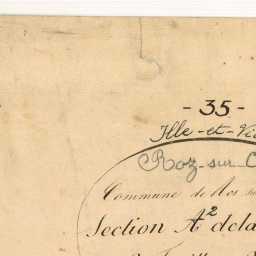 - 35 -
Ille-et-Vi
Roz-sur-C
Commune de Ros su
Section A² de la